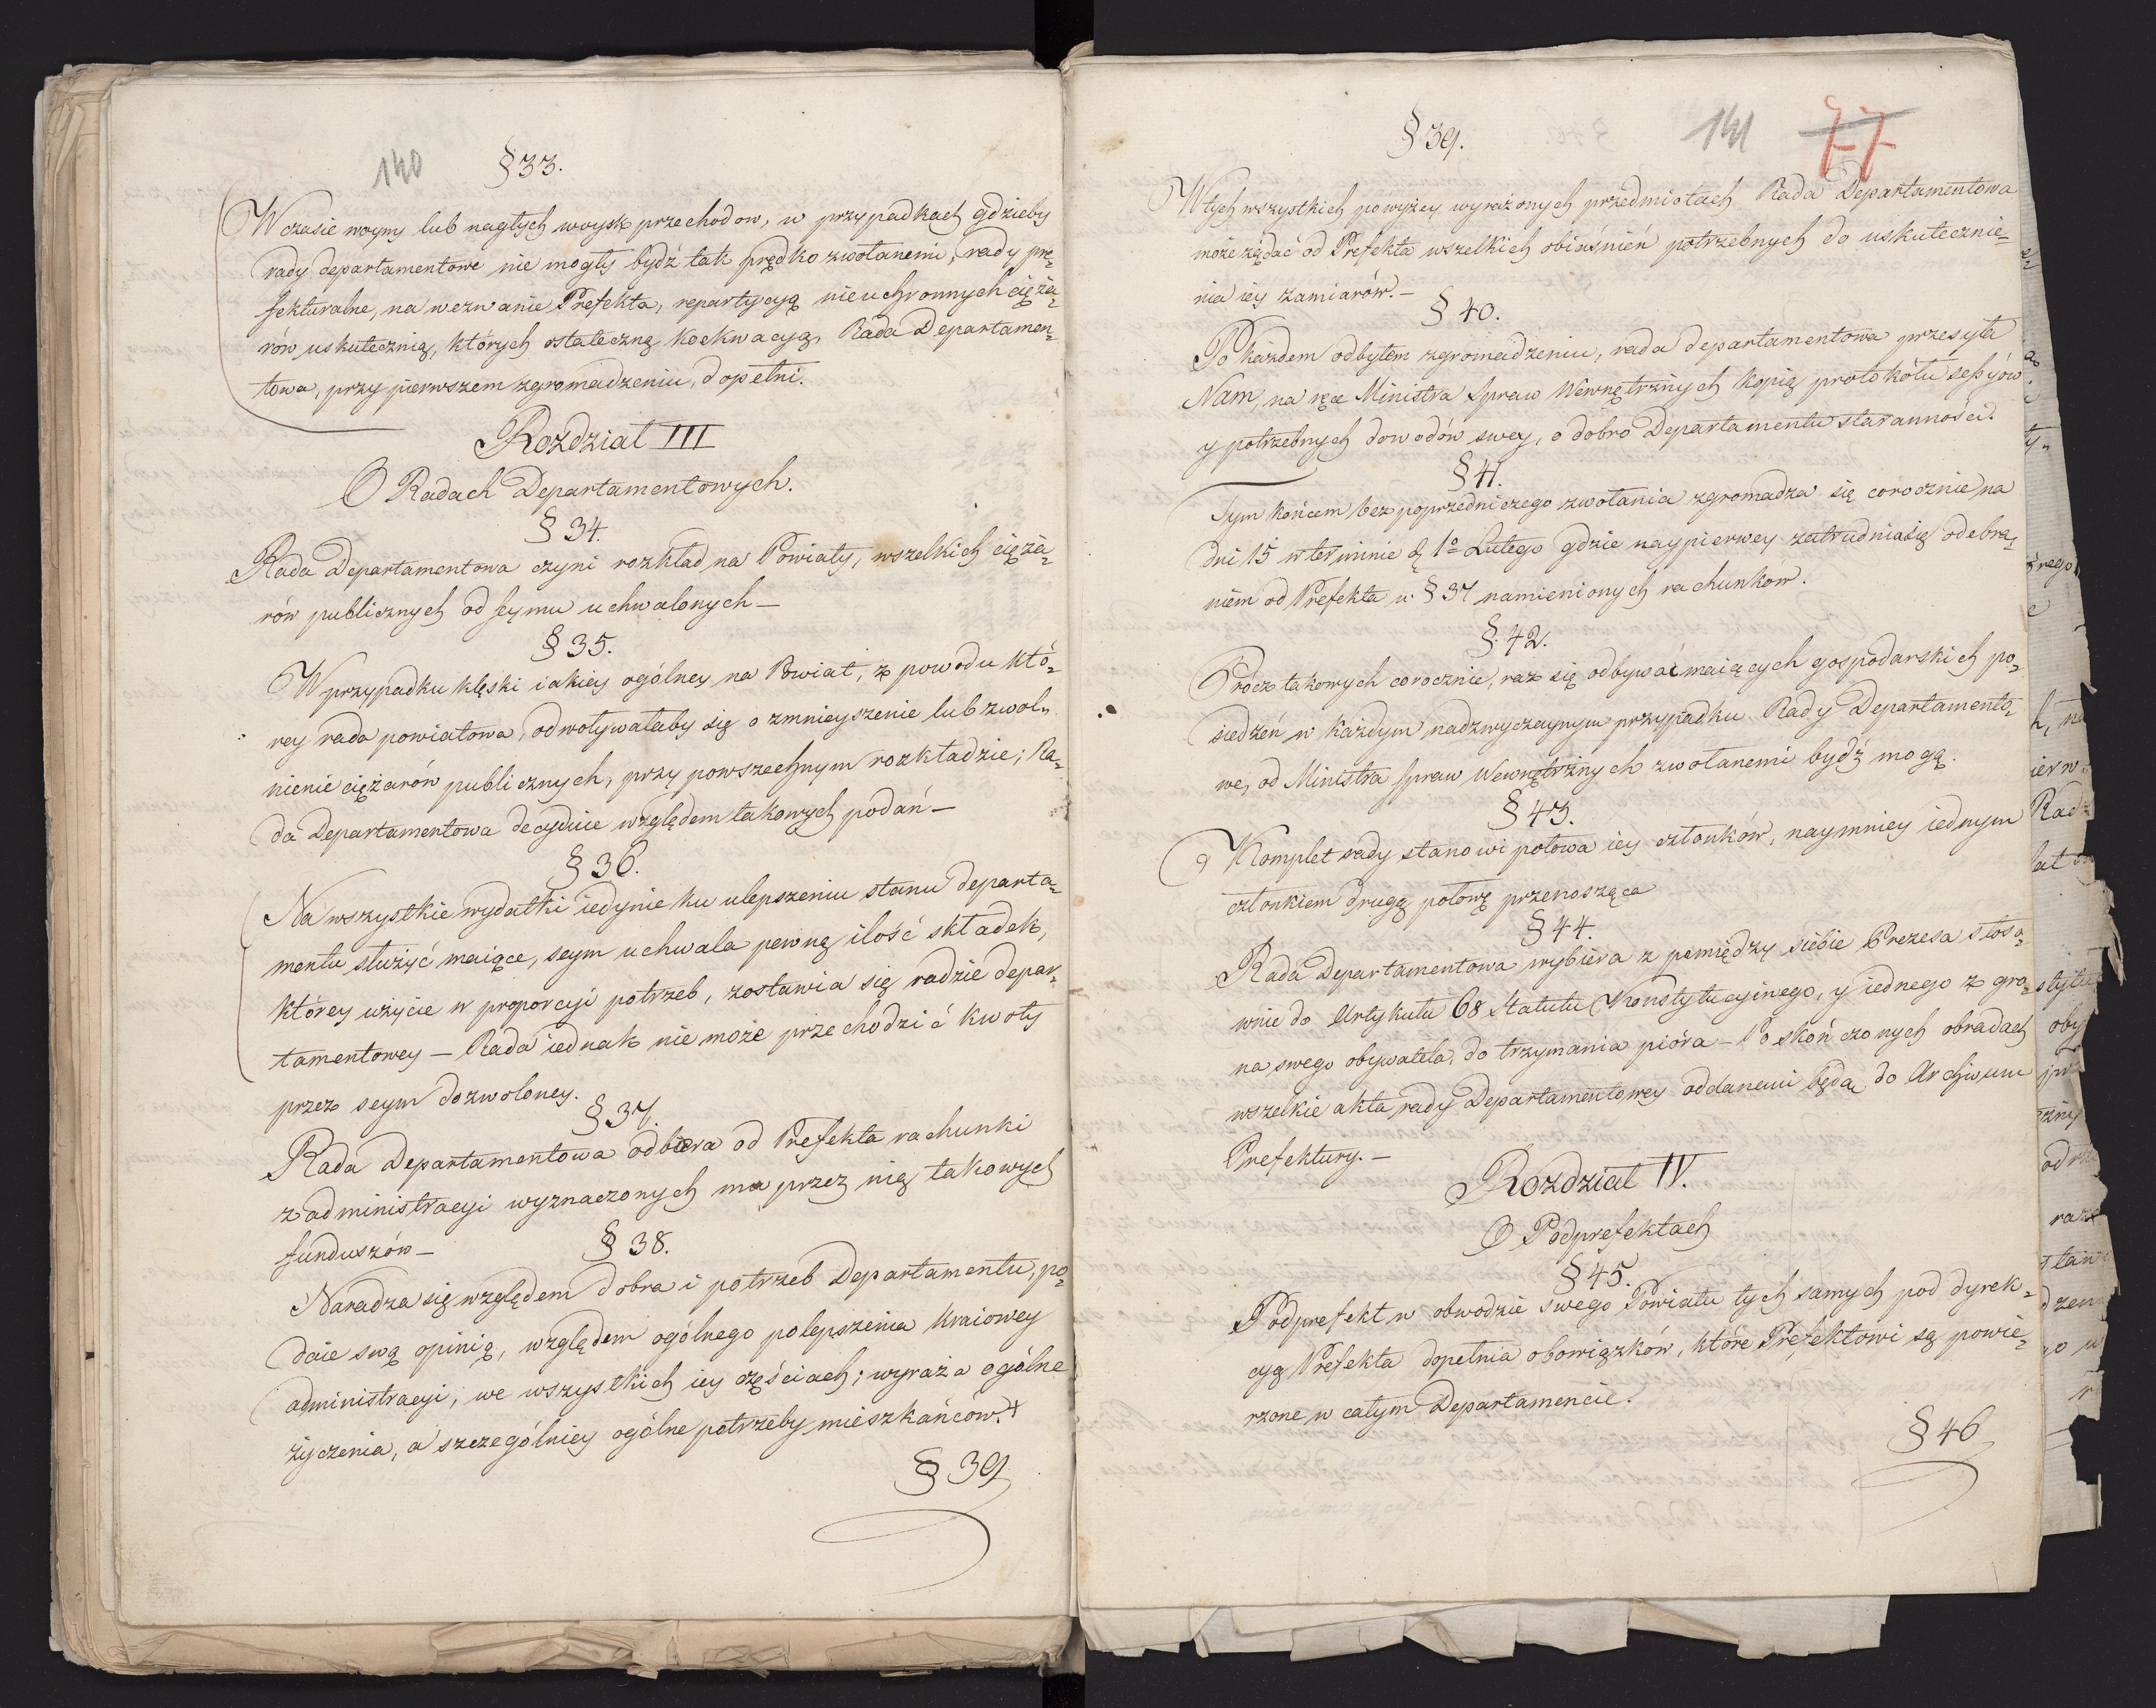 140
§ 33.
W czasie woyny lub nagłych woysk przechodow, w przypadkach gdzieby
rady departamentowe nie mogły bydź tak prędko zwołanemi, rady pre„
fekturalne, na wezwanie Prefekta, repartycyą nieuchronnych cięża„
rów uskutecznią, których ostateczną koekwacyą, Rada Departamen„
towa, przy pierwszem zgromadzeniu, dopełni.
Rozdział III
O Radach Departamentowych.
§ 34.
Rada Departamentowa czyni rozkład na Powiaty, wszelkich cięża„
rów publicznych od seymu uchwalonych —
§ 35.
W przypadku klęski iakiey ogólney na Powiat, z powodu któ„
rey rada powiatowa, odwoływałaby się o zmnieyszenie lub zwol„
nienie ciężarów publicznych, przy powszechnym rozkładzie; Ra„
da Departamentowa decyduie względem takowych podań —
§ 36.
Na wszystkie wydatki iedynie ku ulepszeniu stanu departa„
mentu służyć maiące, seym uchwala pewną ilość składek,
którey użycie w proporcyi potrzeb, zostawia się radzie depar„
tamentowey — Rada iednak nie może przechodzić kwoty
przez seym dozwoloney.
§ 37.
Rada Departamentowa odbiera od Prefekta rachunki
z administracyi wyznaczonych mu przez nią takowych
funduszów —
§ 38.
Naradza się względem dobra i potrzeb Departamentu, po„
daie swą opinią, względem ogólnego polepszenia kraiowey
administracyi, we wszystkich iey częściach; wyraża ogólne
życzenia, a szczególniey ogólne potrzeby mieszkańców. +
§ 39
141 77
§ 39.
W tych wszystkich powyżey wyrażonych przedmiotach Rada Departamentowa
może żądać od Prefekta wszelkich obiaśnień potrzebnych do uskutecznie„
nia iey zamiarów. —
§ 40.
Po każdem odbytem zgromadzeniu, rada departamentowa przesyła
Nam, na ręce Ministra Spraw Wewnętrznych kopią protokółu sessyów
y potrzebnych dowodów swey, o dobro Departamentu staranności.
§ 41.
Tym końcem bez poprzedniczego zwołania zgromadza się corocznie na
dni 15 w terminie d. 1º Lutego gdzie naypierwey zatrudnia się odebra„
niem od Prefekta w § 37 namienionych rachunków.
§. 42.
Prócz takowych corocznie, raz się odbywać maiących gospodarskich po„
siedzeń w każdym nadzwyczaynym przypadku Rady Departamento„
we, od Ministra Spraw Wewnętrznych zwołanemi bydź mogą.
§ 43.
Komplet rady stanowi połowa iey członków, naymniey iednym
członkiem drugą połowę przenosząca
§ 44.
Rada Departamentowa wybiera z pomiędzy siebie Prezesa stoso„
wnie do Artykułu 68 Statutu Konstytucyinego, y iednego z gro„
na swego obywatela, do trzymania pióra — Po skończonych obradach
wszelkie akta rady Departamentowey oddanemi będą do Archiwum
Prefektury. —
Rozdział IV.
O Podprefektach
§ 45.
Podprefekt w obwodzie swego Powiatu tych samych pod dyrek„
cyą Prefekta dopełnia obowiązków, które Prefektowi są powie„
rzone w całym Departamencie.
§ 46